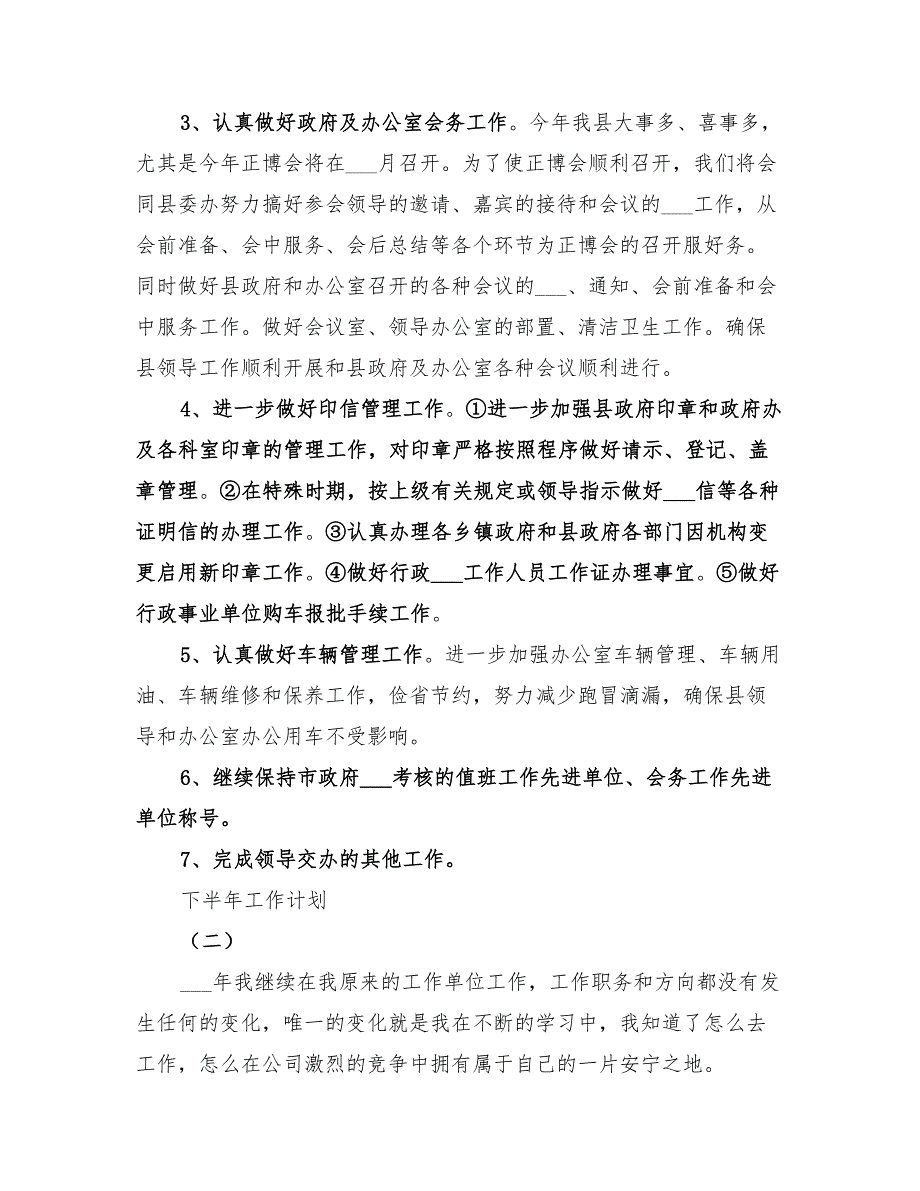 3、认真做好政府及办公室会务工作。今年我县大事多、喜事多，
尤其是今年正博会将在___月召开。为了使正博会顺利召开，我们将会
同县委办努力搞好参会领导的邀请、嘉宾的接待和会议的___工作，从
会前准备、会中服务、会后总结等各个环节为正博会的召开服好务。
同时做好县政府和办公室召开的各种会议的___、通知、会前准备和会
中服务工作。做好会议室、领导办公室的部置、清洁卫生工作。确保
县领导工作顺利开展和县政府及办公室各种会议顺利进行。
4、进一步做好印信管理工作。①进一步加强县政府印章和政府办
及各科室印章的管理工作，对印章严格按照程序做好请示、登记、盖
章管理。②在特殊时期，按上级有关规定或领导指示做好___信等各种
证明信的办理工作。③认真办理各乡镇政府和县政府各部门因机构变
更启用新印章工作。④做好行政___工作人员工作证办理事宜。⑤做好
行政事业单位购车报批手续工作。
5、认真做好车辆管理工作。进一步加强办公室车辆管理、车辆用
油、车辆维修和保养工作，俭省节约，努力减少跑冒滴漏，确保县领
导和办公室办公用车不受影响。
6、继续保持市政府___考核的值班工作先进单位、会务工作先进
单位称号。
7、完成领导交办的其他工作。
下半年工作计划
（二）
___年我继续在我原来的工作单位工作，工作职务和方向都没有发
生任何的变化，唯一的变化就是我在不断的学习中，我知道了怎么去
工作，怎么在公司激烈的竞争中拥有属于自己的一片安宁之地。